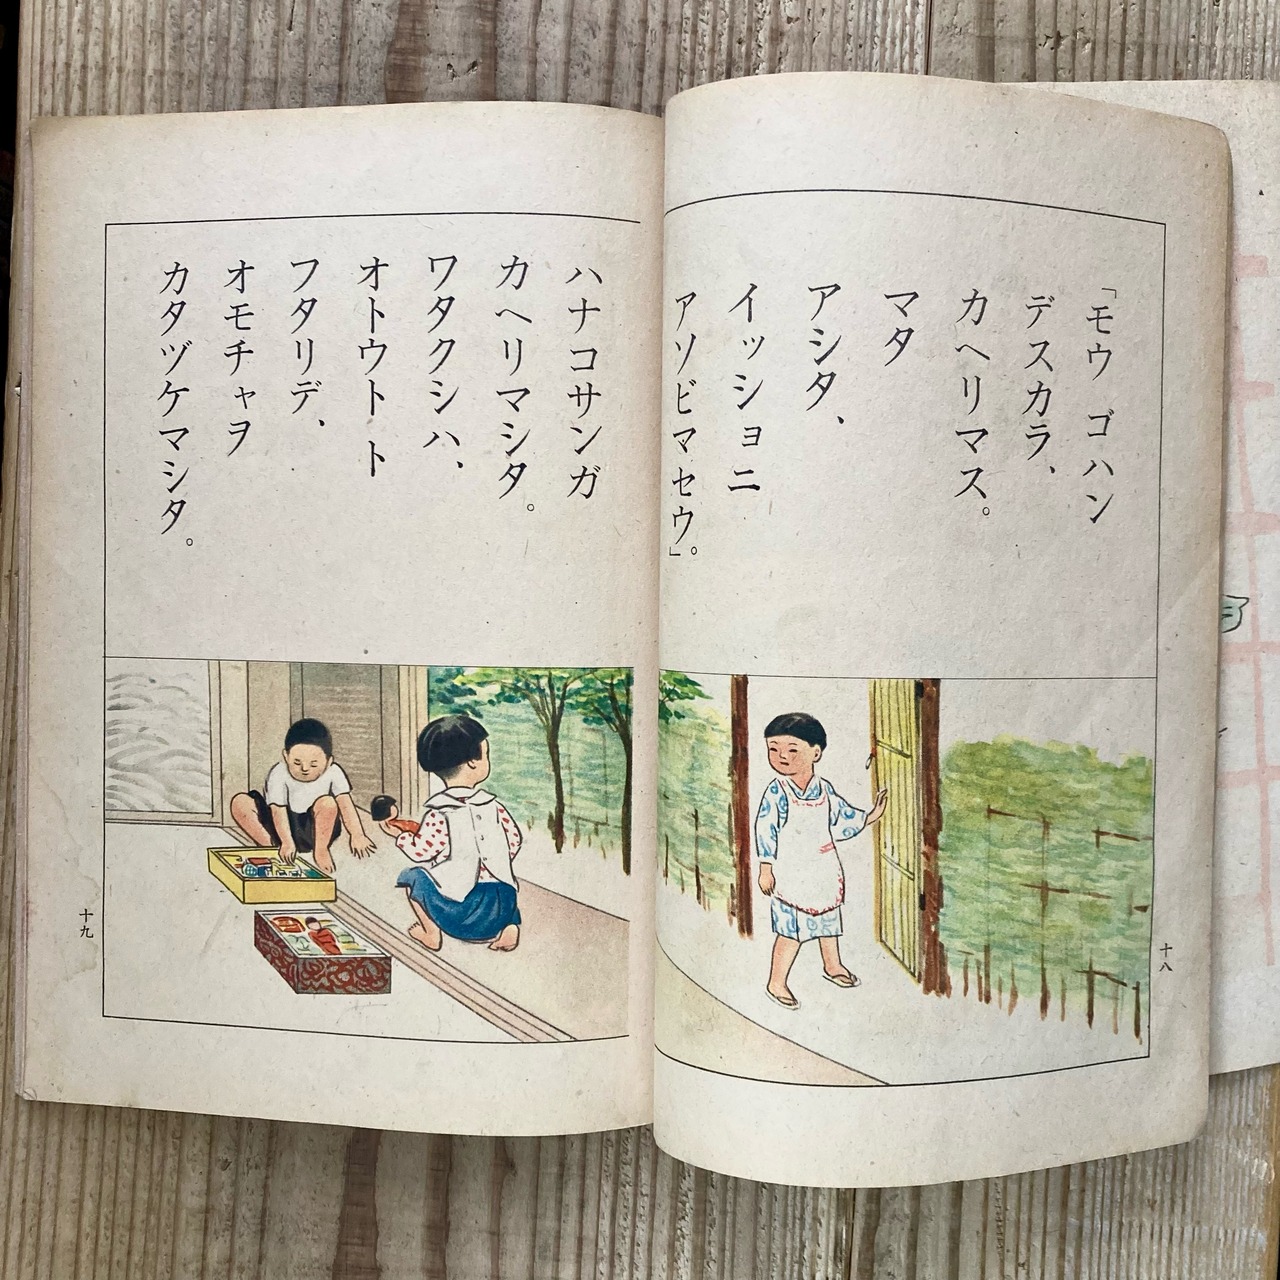 「モウ ゴハン
デスカラ、
カヘリマス。
マタ
アシタ、
イッショニ
アソビマセウ」。
十八
ハナコサンガ
カヘリマシタ。
ワタクシハ、
オトウト ト
フタリデ、
オモチャヲ
カタヅケマシタ。
十九